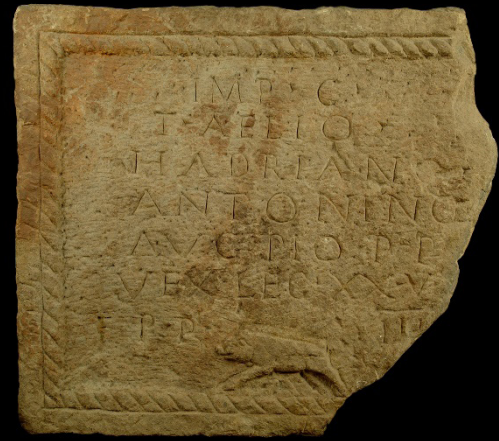 IMP C
T AELIO
HADRIANO
ANTONINO
AVG PIO P P
VEX LEG XX V
P P III